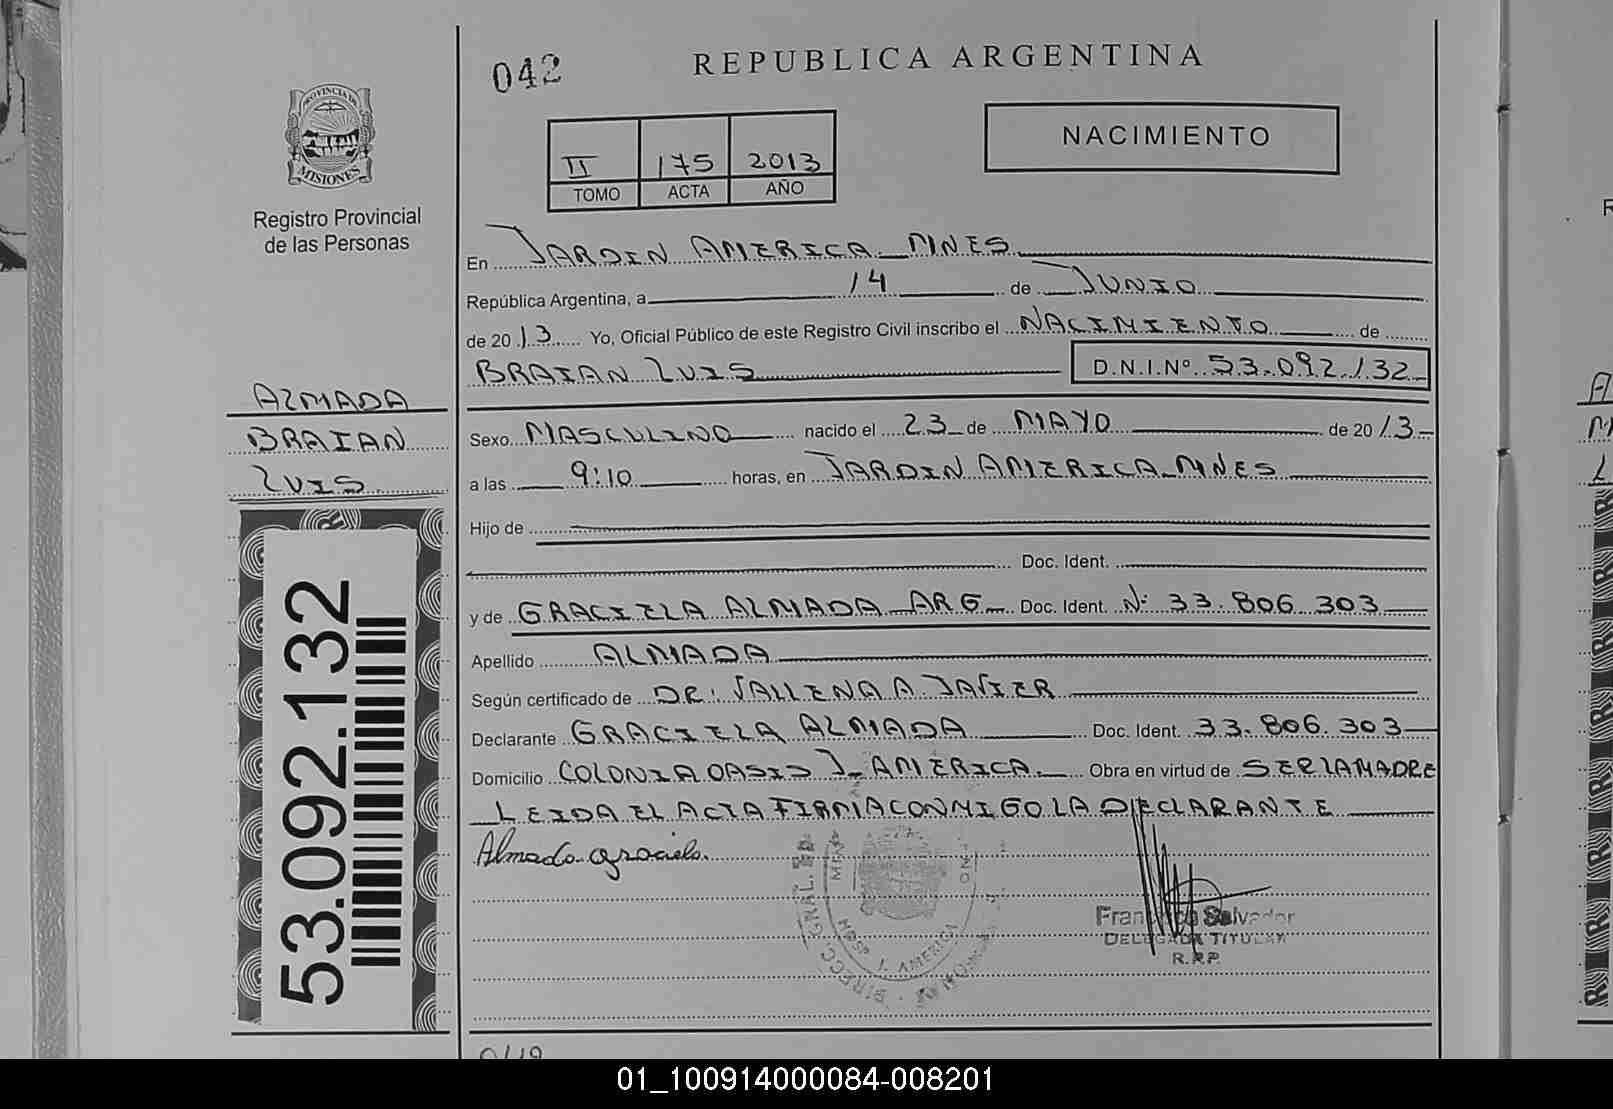 042
REPUBLICA ARGENTINA
PROVINCIA DE
MISIONES
Registro Provincial
de las Personas
II 175 2013
TOMO ACTA AÑO
NACIMIENTO
En JARDIN AMERICA MNES
República Argentina, a 14 de JUNIO
de 2013 Yo, Oficial Público de este Registro Civil inscribo el NACIMIENTO de
BRAIAN LUIS D.N.I.Nº 53.092.132
ALMADA
BRAIAN
LUIS
Sexo MASCULINO nacido el 23 de MAYO de 2013
a las 9:10 horas, en JARDIN AMERICA MNES
Hijo de
Doc. Ident.
y de GRACIELA ALMADA ARG Doc. Ident. Nº 33.806.303
Apellido ALMADA
Según certificado de DR: A JAVIER
Declarante GRACIELA ALMADA Doc. Ident. 33.806.303
Domicilio COLONIA OASIS J. AMERICA Obra en virtud de SER LA MADRE
LEIDA EL ACTA FIRMA CONMIGO LA DECLARANTE
Almada graciela.
53.092.132
J. AMERICA
Salvador
DELEGADA TITULAR
R.P.P.
01_100914000084-008201